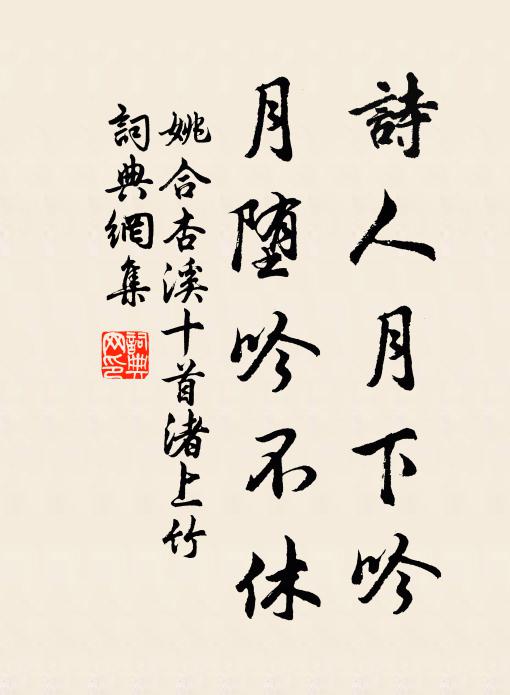 詩人月下吟
月堕吟不休
姚合杏溪十首渚上竹
詞典網集
詞典
網印